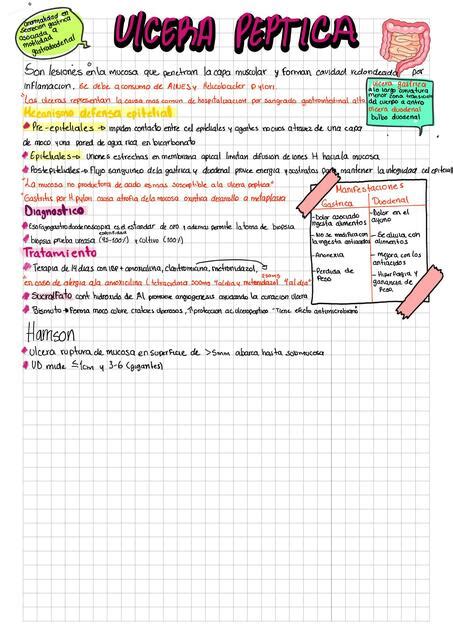 ULCERA PEPTICA
Anormalidad en
secreción gastrica
asociada a
motilidad
gastroduodenal
Son lesiones en la mucosa que penetran la capa muscular y forman cavidad redondeada por
inflamacion, Se debe a consumo de AINES y Helicobacter Pylori.
"Las ulceras representan la causa mas comun de hospitalizacion por sangrado gastrointestinal alto
ulcera gastrica
a lo largo curvatura
menor zona transicion
del cuerpo a antro
ulcera duodenal
bulbo duodenal
Mecanismo defensa epitelial
Pre-epiteliales → impiden contacto entre cel epiteliales y agentes nocivos a traves de una capa
de moco y una pared de agua rica en bicarbonato
Epiteliales → Uniones estrechas en membrana apical limitan difusion de iones H hacia la mucosa
Postepiteliales → Flujo sanguineo de la gastrica y duodenal provee energia y sustratos para mantener la integridad cel epitelial
"La mucosa no productora de acido es mas susceptible a la ulcera peptica"
"Gastritis por H. pylori causa atrofia de la mucosa oxintica desarrollo a metaplasia
Manifestaciones
Gastrica Duodenal
-Dolor asociado
ingesta alimentos
-No se modifica con
la ingesta antiacidos
-Anorexia
-Perdida de
Peso
-Dolor en el
ayuno
-Se alivia con
alimentos
-mejora con los
antiacidos
-Hiperfagia y
ganancia de
Peso
Diagnostico
Esofagogastroduodenoscopia es el estandar de oro y ademas permite la toma de biopsia
biopsia prueba ureasa (95-100%) y cultivo (100%)
Tratamiento
Terapia de 14 dias con IBP + amoxicilina, claritromicina, metronidazol,
en caso de alergia a la amoxicilina (tetraciclina 500mg 4 al dia y metronidazol 250mg 4 al dia
Sucralfato cont hidroxido de Al promueve angiogenesis ayudando la curacion ulcera
Bismuto → Forma moco sobre crateres ulcerosos, proteccion acidopeptico "Tiene efecto antimicrobiano
Harrison
Ulcera ruptura de mucosa en superficie de >5mm abarca hasta submucosa
UD mide ≤1cm y 3-6 (gigantes)